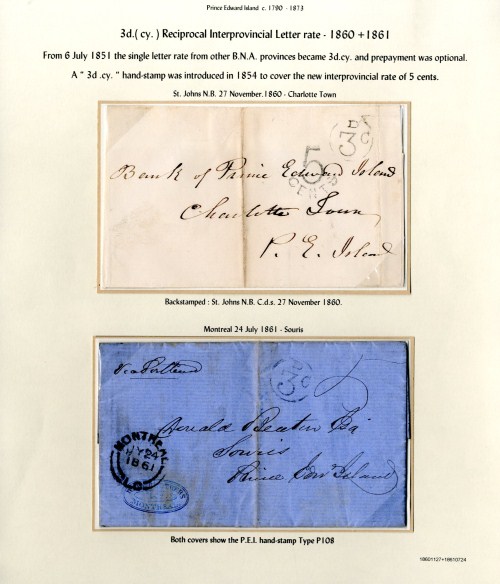 Prince Edward Island c. 1790 - 1873
3d.( cy. ) Reciprocal Interprovincial Letter rate - 1860 +1861
From 6 July 1851 the single letter rate from other B.N.A. provinces became 3d.cy. and prepayment was optional.
A " 3d .cy. " hand-stamp was introduced in 1854 to cover the new interprovincial rate of 5 cents.
St. Johns N.B. 27 November.1860 - Charlotte Town
D
3
C
5
CENTS
Bank of Prince Edward Island
Charlotte Town
P. E. Island
Backstamped : St. Johns N.B. C.d.s. 27 November 1860.
Montreal 24 July 1861 - Souris
via Portland
3
C
Donald Beaton
Souris
Prince Edw Island
MONTREAL
JY 24
1861
Both covers show the P.E.I. hand-stamp Type P108
18601127+18610724